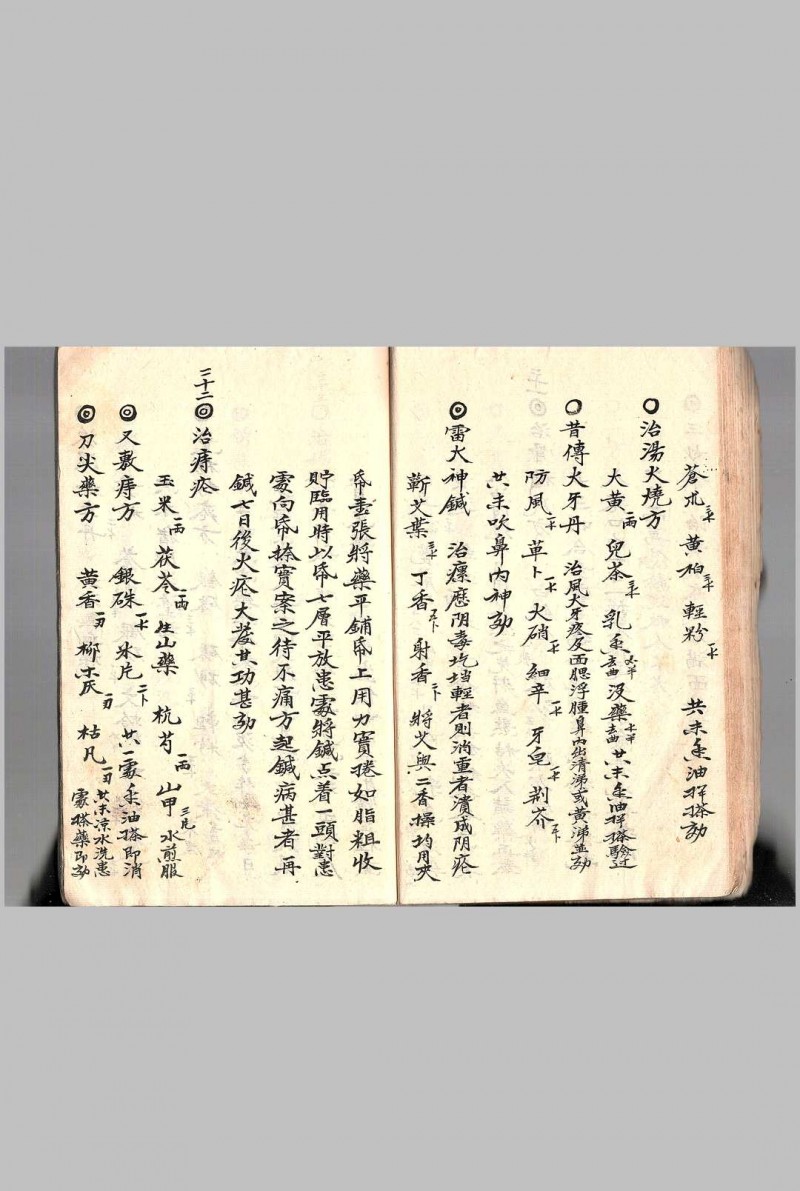 蒼朮 黄柏 輕粉 共末香油拌搽効
治湯火燒方
大黄一両 兒茶 乳香去油 没藥去油 共末香油拌搽驗过
昔傳火牙丹 治風火牙疼及面腮浮腫鼻內出清涕或黄涕並効
防風 草卜 火硝 細辛 牙皂 荆芥
共末吹鼻內神効
雷火神鍼 治瘰癧阴毒圪垱輕者則消重者潰成阴疮
蘄艾葉 丁香 射香 將艾與二香揉均用夾
帋壹張將藥平鋪帋上用力實捲如脂粗收
貯臨用時以帋七層平放患處將鍼点着一頭對患
處向帋捺實案之待不痛方起鍼病甚者再
鍼七日後火疮大發其功甚効
二十二 治痔疮
玉米一両 茯苓一両 生山藥 杭芍一両 山甲三片 水煎服
又敷痔方 銀硃 氷片 共一處香油搽即消
刀尖藥方 黄香 柳木灰 枯凡 共末凉水洗患
處搽藥即効